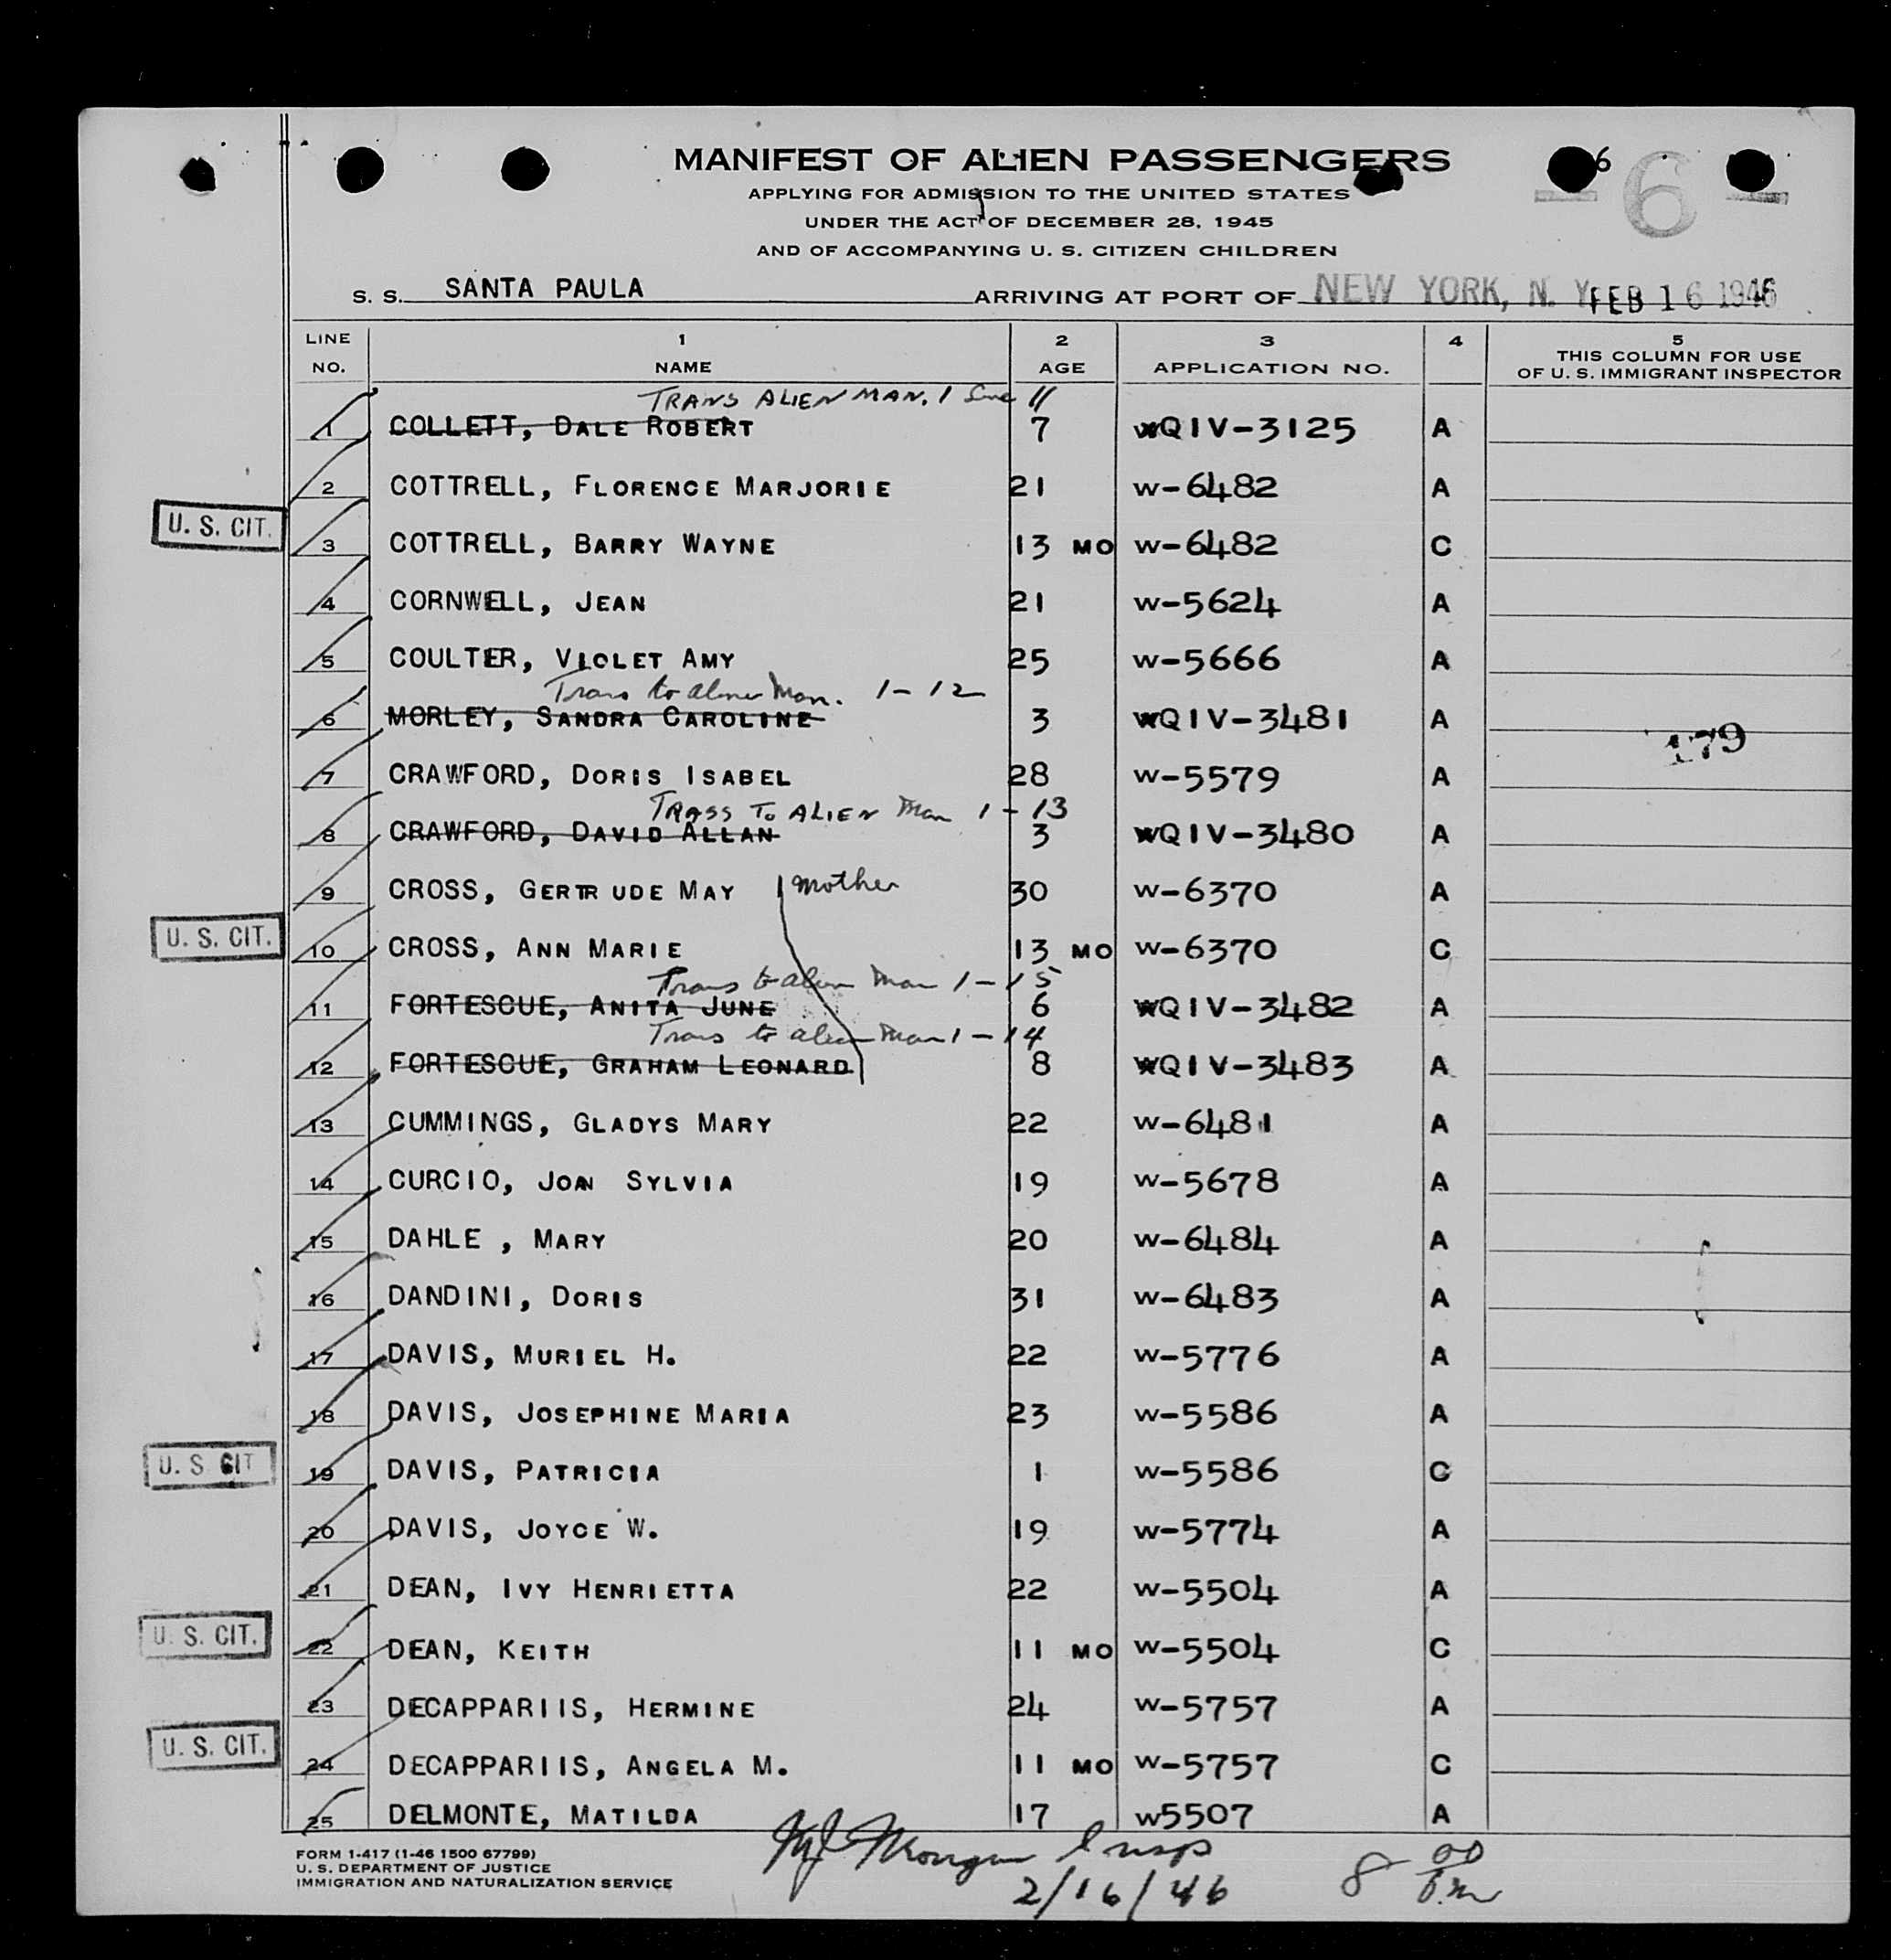 MANIFEST OF ALIEN PASSENGERS
6
-6-
APPLYING FOR ADMISSION TO THE UNITED STATES
UNDER THE ACT OF DECEMBER 28, 1945
AND OF ACCOMPANYING U. S. CITIZEN CHILDREN
S. S. SANTA PAULA ARRIVING AT PORT OF NEW YORK, N. Y. FEB 16 1946
LINE NO. 1 NAME 2 AGE 3 APPLICATION NO. 4 5 THIS COLUMN FOR USE OF U. S. IMMIGRANT INSPECTOR
TRANS ALIEN MAN. 1 Line 11
1 COLLETT, DALE ROBERT 7 WQIV-3125 A
2 COTTRELL, FLORENCE MARJORIE 21 W-6482 A
U. S. CIT. 3 COTTRELL, BARRY WAYNE 13 MO W-6482 C
4 CORNWELL, JEAN 21 W-5624 A
5 COULTER, VIOLET AMY 25 W-5666 A
Trans to alien Man. 1-12
6 MORLEY, SANDRA CAROLINE 3 WQIV-3481 A
179
7 CRAWFORD, DORIS ISABEL 28 W-5579 A
TRASS TO ALIEN Man 1-13
8 CRAWFORD, DAVID ALLAN 3 WQIV-3480 A
9 CROSS, GERTRUDE MAY Mother 30 W-6370 A
U. S. CIT. 10 CROSS, ANN MARIE 13 MO W-6370 C
Trans to alien Man 1-15
11 FORTESCUE, ANITA JUNE 6 WQIV-3482 A
Trans to alien Man 1-14
12 FORTESCUE, GRAHAM LEONARD 8 WQIV-3483 A
13 CUMMINGS, GLADYS MARY 22 W-6481 A
14 CURCIO, JOAN SYLVIA 19 W-5678 A
15 DAHLE , MARY 20 W-6484 A
16 DANDINI, DORIS 31 W-6483 A
17 DAVIS, MURIEL H. 22 W-5776 A
18 DAVIS, JOSEPHINE MARIA 23 W-5586 A
U. S CIT 19 DAVIS, PATRICIA 1 W-5586 C
20 DAVIS, JOYCE W. 19 W-5774 A
21 DEAN, IVY HENRIETTA 22 W-5504 A
U. S. CIT. 22 DEAN, KEITH 11 MO W-5504 C
23 DECAPPARIIS, HERMINE 24 W-5757 A
U. S. CIT. 24 DECAPPARIIS, ANGELA M. 11 MO W-5757 C
25 DELMONTE, MATILDA 17 W5507 A
FORM 1-417 (1-46 1500 67799)
U. S. DEPARTMENT OF JUSTICE
IMMIGRATION AND NATURALIZATION SERVICE
Insp
2/16/46
8 00